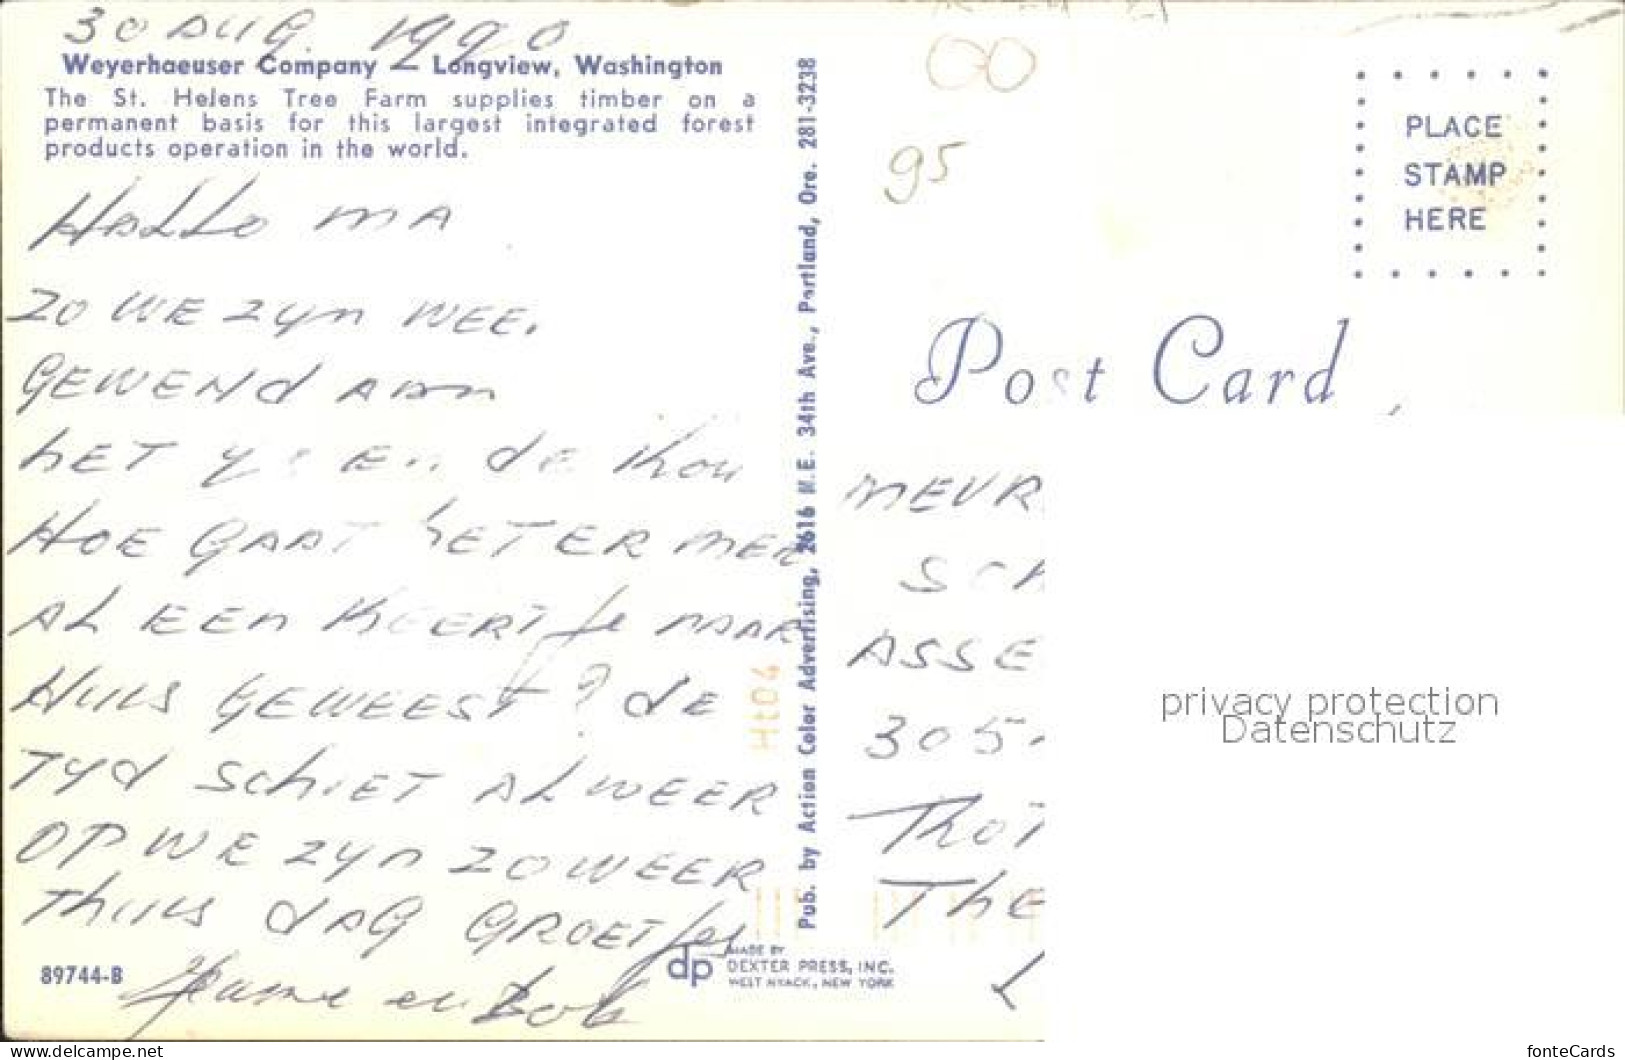 30 AUG. 1990
Weyerhaeuser Company — Longview, Washington
The St. Helens Tree Farm supplies timber on a
permanent basis for this largest integrated forest
products operation in the world.
HALLO MA
ZO WE ZYN WEE.
GEWEND AAN
HET EN de
HOE GAAT HET ER MEE
AL EEN KEERTJE NAAR
HUIS GEWEEST? dE
TYd SCHIET AL WEER
OP WE ZYN ZO WEER
THUIS dAG GROETJES
en Bob
89744-B
Pub. by Action Color Advertising, 2616 N.E. 34th Ave., Portland, Ore. 281-3238
Ht04
dp MADE BY
DEXTER PRESS, INC.
WEST NYACK, NEW YORK
95
PLACE
STAMP
HERE
Post Card
MEVR
SCH
ASSE
305
The
L
privacy protection
Datenschutz
www.delcampe.net
fonteCards